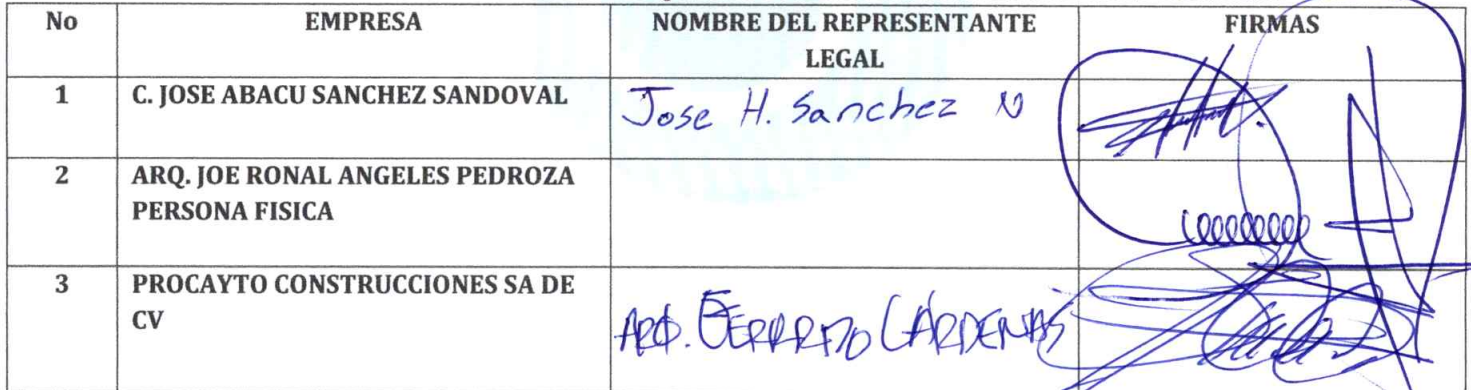 No EMPRESA NOMBRE DEL REPRESENTANTE LEGAL FIRMAS
1 C. JOSE ABACU SANCHEZ SANDOVAL Jose H. Sanchez
2 ARQ. JOE RONAL ANGELES PEDROZA
PERSONA FISICA
3 PROCAYTO CONSTRUCCIONES SA DE
CV
ARQ. GERARDO CÁRDENAS